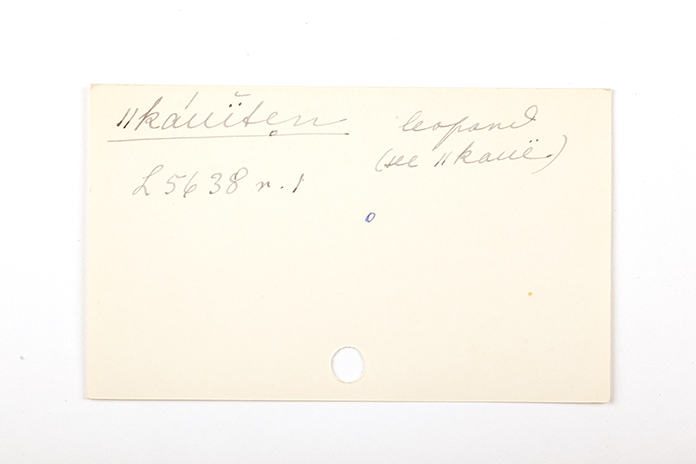 ǁkáuïtẹn leopard
(see ǁkauë)
L 5638 r. 1
o